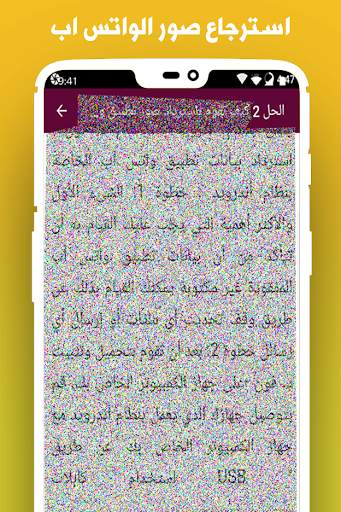 استرجاع صور الواتس اب
9:41
47
الحل 2 كيف تقوم باسترداد صور تطبيق و...
استرداد بيانات تطبيق واتس اب الخاصة
بنظام أندرويد : خطوة 1 الشيء الأول
والأكثر أهمية التي يجب عليك القيام به أن
تتأكد من أن بيانات تطبيق واتس اب
المفقودة غير مكتوبة يمكنك القيام بذلك عن
طريق وقف تحديث أي بيانات أو إرسال أي
رسائل خطوة 2: بعد أن تقوم بتحميل وتثبيت
فون على جهاز الكمبيوتر الخاص بك، قم
بتوصيل جهازك الذي يعمل بنظام أندرويد مع
جهاز الكمبيوتر الخاص بك عن طريق
استخدام كابلات USB